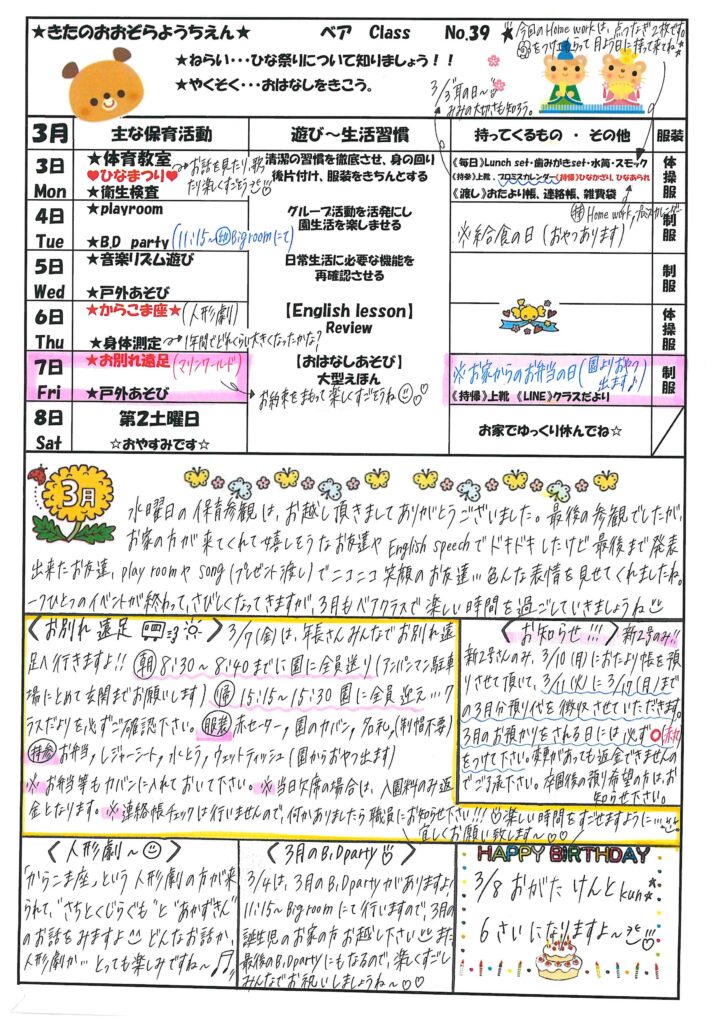 ★きたのおおぞらようちえん★ ベア Class No.39
★今回のHome workは、点つなぎ2枚です。
をつけてもらって月よう日に持って来てね★
★ねらい・・・ひな祭りについて知りましょう！！
★やくそく・・・おはなしをきこう。
3/3耳の日〜
おみみの大切さも知ろう。
3月 主な保育活動 遊び〜生活習慣 持ってくるもの ・ その他 服装
3日 Mon
★体育教室
♥ひなまつり♥
★衛生検査
お話を見たり、歌ったり楽しくすごそう
清潔の習慣を徹底させ、身の回り
後片付け、服装をきちんとする
《毎日》Lunch set・歯みがきset・水筒・スモック
《持参》上靴、プロミスカレンダー《持帰》ひなかざり、ひなあられ
《渡し》おたより帳、連絡帳、雑費袋
体操服
4日 Tue
★playroom
★B.D party (11:15〜幼Big roomにて)
グループ活動を活発にし
園生活を楽しませる
持 Home work, プロミスカレンダー
※給食の日(おやつあります)
制服
5日 Wed
★音楽リズム遊び
★戸外あそび
日常生活に必要な機能を
再確認させる
制服
6日 Thu
★からこま座★(人形劇)
★身体測定 1年間でどれくらい大きくなったかな?
【English lesson】
Review
体操服
7日 Fri
★お別れ遠足(マリンワールド)
★戸外あそび
【おはなしあそび】
大型えほん
お約束をまもって楽しくすごそうね♡♡
※お家からのお弁当の日(園よりおやつ出ます♪)
《持帰》上靴 《LINE》クラスだより
制服
8日 Sat
第2土曜日
☆おやすみです☆
お家でゆっくり休んでね☆
3月
水曜日の保育参観は、お越し頂きましてありがとうございました。最後の参観でしたが、
お家の方が来てくれて嬉しそうなお友達やEnglish speechでドキドキしたけど最後まで発表
出来たお友達、play roomやsong(プレゼント渡し)でニコニコ笑顔のお友達…色んな表情を見せてくれましたね。
一つひとつのイベントが終わって、さびしくなってきますが、3月もベアクラスで楽しい時間を過ごしていきましょうね
〈お別れ遠足〉 3/7(金)は、年長さんみんなでお別れ遠
足へ行きますよ!! 朝 8:30〜8:40までに園に全員送り(アンパンマン駐車
場にとめて玄関までお願いします) 帰 15:15〜15:30 園に全員迎え…ク
ラスだよりを必ずご確認下さい。服装 赤セーター, 園のカバン, 名札, (制帽不要)
持参 お弁当, レジャーシート, 水とう, ウェットティッシュ (園からおやつ出ます)
※お弁当等もカバンに入れておいて下さい。※当日欠席の場合は、入園料のみ返
金となります。※連絡帳チェックは行いませんので、何かありましたら職員にお知らせ下さい!!! ♡楽しい時間をすごせますように…
宜しくお願い致します〜♡♡
〈お知らせ!!!〉新2号のみ!!
新2号さんのみ、3/10(月)におたより帳を預
りさせて頂いて、3/11(火)に3/17(月)まで
の3月分預り代を徴収させていただきます。
3月のお預かりをされる日には必ず○(赤丸)
をつけて下さい。変更があっても返金できませんの
でご了承下さい。卒園後の預り希望の方はお
知らせ下さい。
〈人形劇〜〉
「からこま座」という人形劇の方が来
られて、"さちとくじらぐも"と"あかずきん"
のお話をみますよ どんなお話か、
人形劇か… とっても楽しみですね〜♪
〈3月のB.D party〉
3/4は、3月のB.D partyがありますよ!
11:15〜Big roomにて行いますので、3月の
誕生児のお家の方お越し下さい また
最後のB.D partyにもなるので、楽しくすごし
みんなでお祝いしましょうね〜♡♡
HAPPY BiRTHDAY
3/8 おがた けんとkun★
6さいになりますよ〜♡